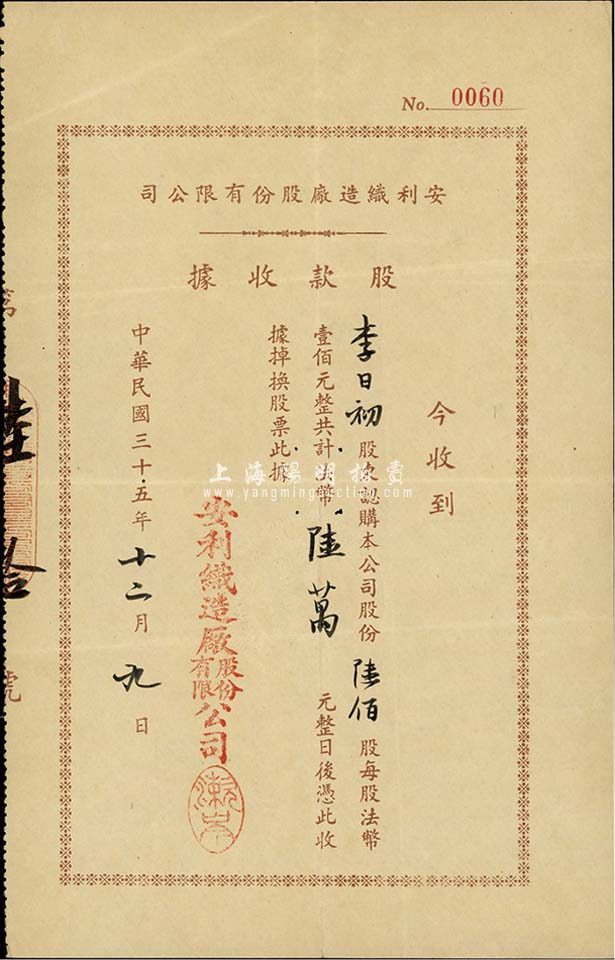 No. 0060
安利織造廠股份有限公司
股款收據
今收到
李日初股東認購本公司股份陸佰股每股法幣
壹佰元整共計法幣陸萬元整日後憑此收
據掉換股票此據
安利織造廠股份有限公司
中華民國三十五年十二月九日
第陸拾號
上海陽明拍賣
www.yangmingauction.com